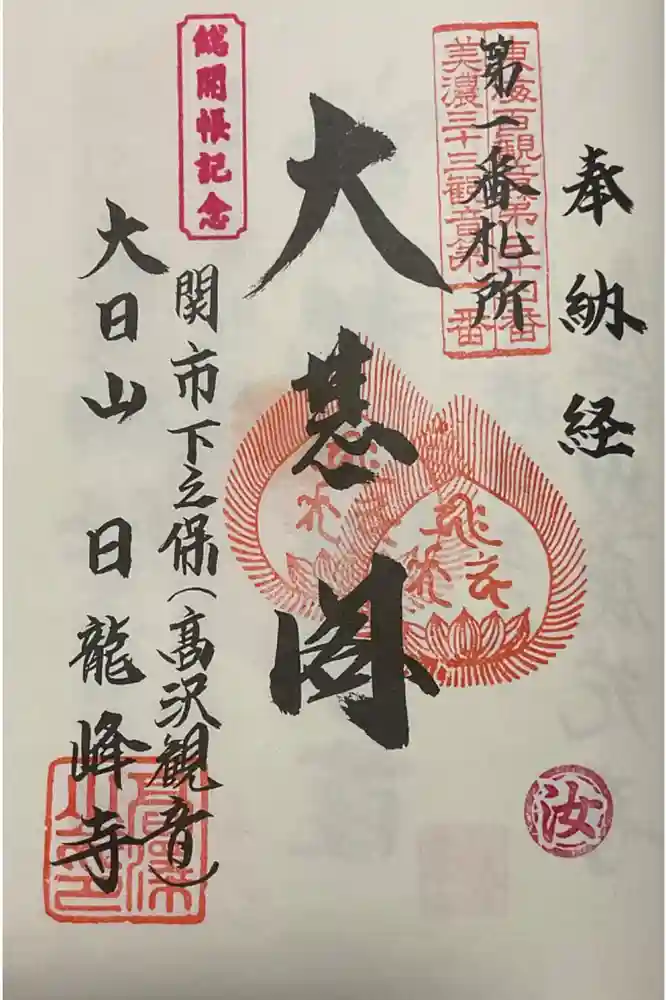 奉納経
東海百観音第三十四番
美濃三十三観音第一番
第一番札所
大悲閣
総開帳記念
関市下之保(高沢観音)
大日山 日龍峰寺
汝